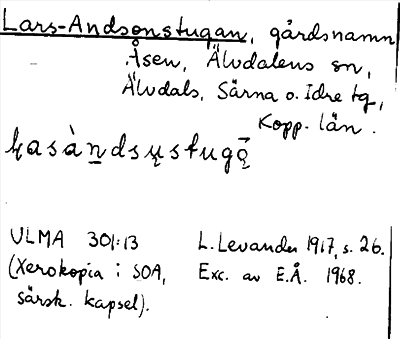 Lars-Andsonstugan, gårdsnamn
Åsen, Älvdalens sn,
Älvdals, Särna o. Idre tg,
Kopp. län.
ULMA 301:13
(Xerokopia i SOA,
särsk. kapsel).
L. Levander 1917, s. 26.
Exc. av E.Å. 1968.